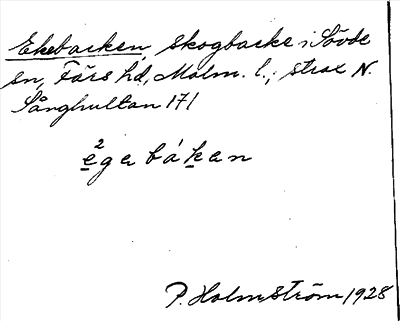 Ekebacken, skogbacke i Sövde
sn, Färs hd, Malm. l.; strax N.
Sånghultan 171
ègabákan
P. Holmström 1928